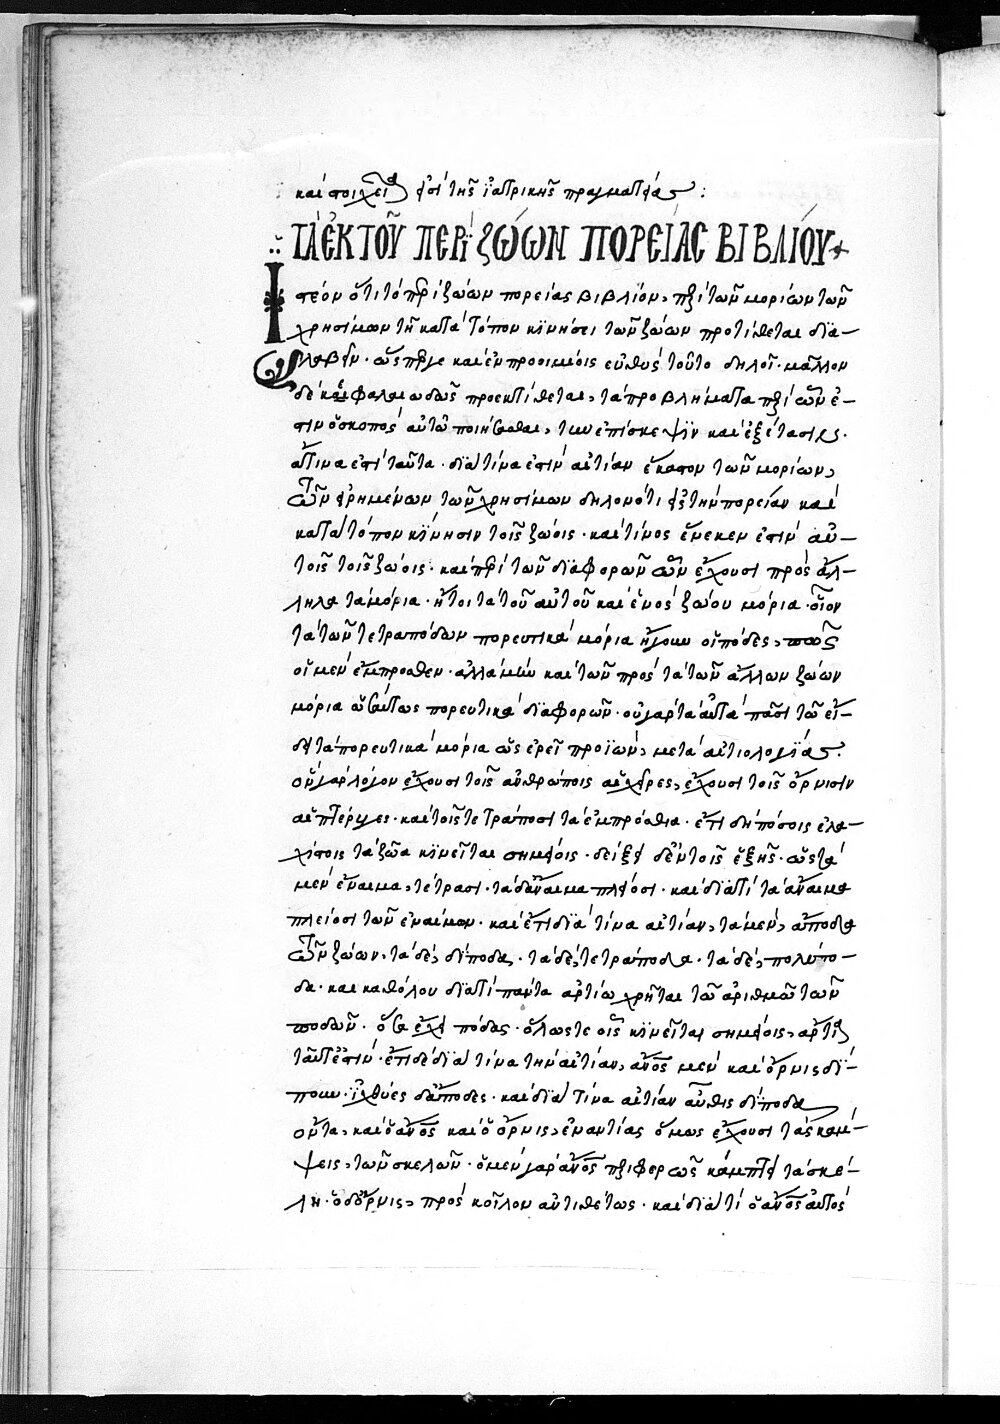 καὶ στοιχεῖα φύσει τῆς ἰατρικῆς πραγματείας :
ΤᾺ ἘΚ ΤΟΥ͂ ΠΕΡῚ ΖΏΩΝ ΠΟΡΕΊΑΣ ΒΙΒΛΊΟΥ +
Ἰστέον ὅτι τὸ περὶ ζώων πορείας βιβλίον, περὶ τῶν μορίων τῶν
χρησίμων τῇ κατὰ τόπον κινήσει τῶν ζώων προτίθεται δια-
λαβεῖν · ὥσπερ γε καὶ ἐν προοιμίοις εὐθὺς τοῦτο δηλοῖ · μᾶλλον
δὲ κεφαλαιωδῶς προεκτίθεται, τὰ προβλήματα περὶ ὧν ἐ-
στιν ὁ σκοπὸς αὐτῷ ποιήσασθαι, τὴν ἐπίσκεψιν καὶ ἐξέτασιν ·
ἅτινα ἐστὶ ταῦτα · διὰ τίνα ἐστὶν αἰτίαν ἕκαστον τῶν μορίων,
τῶν εἰρημένων τῶν χρησίμων δηλονότι εἰς τὴν πορείαν καὶ
κατὰ τόπον κίνησιν τοῖς ζώοις · καὶ τίνος ἕνεκεν ἐστὶν αὐ-
τοῖς τοῖς ζώοις · καὶ περὶ τῶν διαφορῶν ὧν ἔχουσι πρὸς ἄλ-
ληλα τὰ μόρια · ἤτοι τὰ τοῦ αὐτοῦ καὶ ἑνὸς ζώου μόρια · οἷον
τὰ τῶν τετραπόδων πορευτικὰ μόρια ἤγουν οἱ πόδες, πρὸς
οἱ μὲν ἔμπροσθεν · ἀλλὰ μὴν καὶ τῶν πρὸς τὰ τῶν ἄλλων ζώων
μόρια ὡσαύτως πορευτικὰ διαφορῶν · οὐ γὰρ τὰ αὐτὰ πᾶσι τῷ εἴ-
δει τὰ πορευτικὰ μόρια ὡς ἐρεῖ προϊὼν, μετὰ αἰτιολογίας ·
ὃν γὰρ λόγον ἔχουσι τοῖς ἀνθρώποις αἱ χεῖρες, ἔχουσι τοῖς ὄρνισιν
αἱ πτέρυγες · καὶ τοῖς τετράποσι τὰ ἐμπρόσθια · ἔτι δὴ πόσοις ἐλα-
χίστοις τὰ ζῶα κινεῖται σημείοις · δείξει δὲ ἐν τοῖς ἑξῆς · ὥστε τὰ
μὲν ἔναιμα, τέτρασι · τὰ δ' ἄναιμα πλείοσι · καὶ διὰ τί τὰ ἄναιμα
πλείοσι τῶν ἐναίμων · καὶ ἔτι διὰ τίνα αἰτίαν, τὰ μὲν, ἄποδα
τῶν ζώων, τὰ δὲ, δίποδα, τὰ δὲ, τετράποδα · τὰ δὲ, πολύπο-
δα · καὶ καθόλου διὰ τί πάντα ἀρτίῳ χρῆται τῷ ἀριθμῷ τῶν
ποδῶν · ὅσα ἔχει πόδας · ὅλως τε οἷς κινεῖται σημείοις, ἄρτια
ταῦτ' ἐστίν · ἔτι δὲ διὰ τίνα τὴν αἰτίαν, ἄνος μὲν καὶ ὄρνις δί-
πουν · ἰχθύες δ' ἄποδες · καὶ διὰ τίνα αἰτίαν αὖθις δίποδα
ὄντα, καὶ ὁ ἄνος καὶ ὁ ὄρνις, ἐναντίας ὅμως ἔχουσι τὰς κάμ-
ψεις, τῶν σκελῶν · ὁ μὲν γὰρ ἄνος περιφερῶς κάμπτει τὰ σκέ-
λη · ὁ δ' ὄρνις, πρὸς κοῖλον ἀντιθέτως · καὶ διὰ τί ὁ ἄνος αὐτὸς